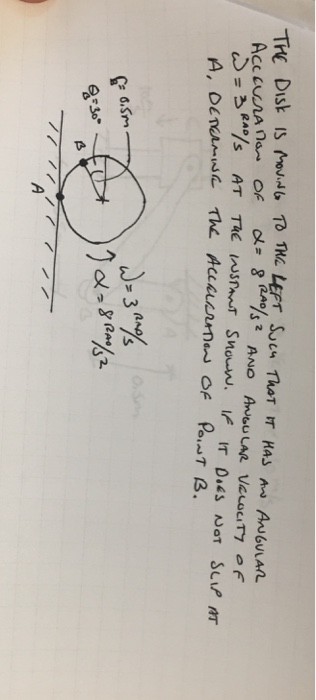 THE DISK IS MOVING TO THE LEFT SUCH THAT IT HAS AN ANGULAR
ACCELERATION OF α = 8 RAD/S² AND ANGULAR VELOCITY OF
ω = 3 RAD/S AT THE INSTANT SHOWN. IF IT DOES NOT SLIP AT
A, DETERMINE THE ACCELERATION OF POINT B.
r_B = 0.5m
θ_B = 30°
B
A
ω = 3 RAD/S
α = 8 RAD/S²